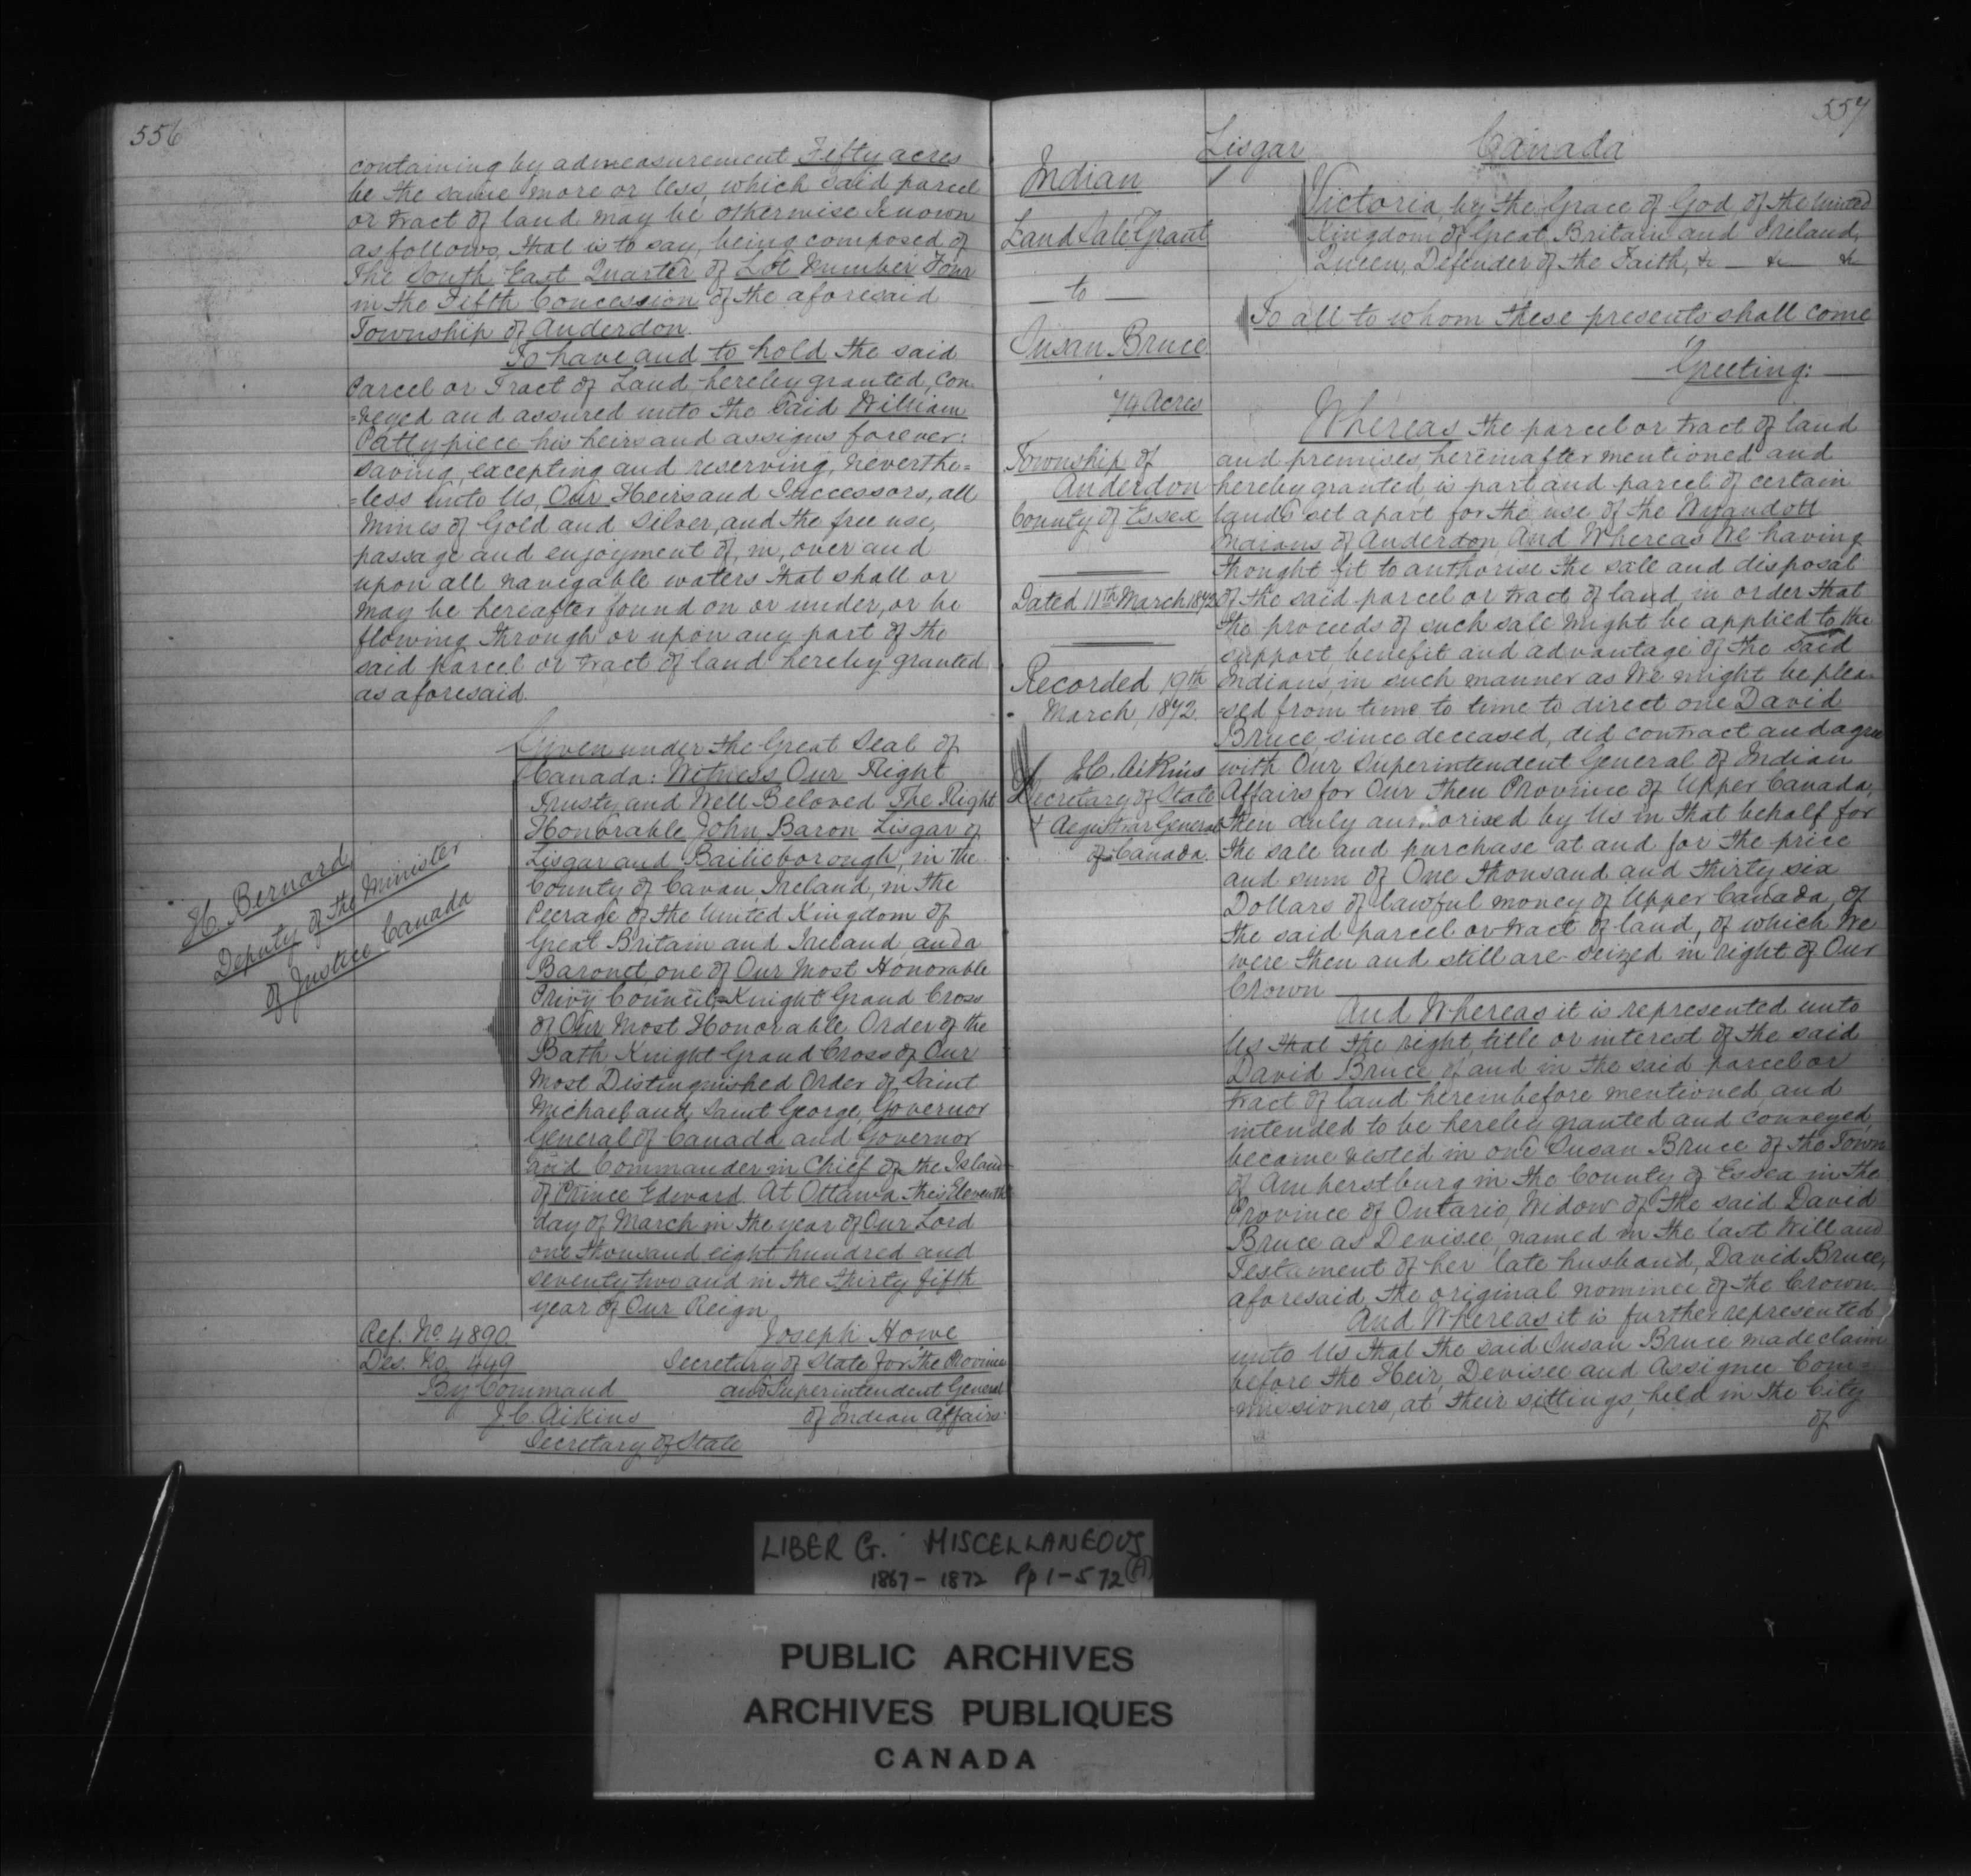 556
containing by admeasurement Fifty acres
be the same more or less, which said parcel
or tract of land may be otherwise known
as follows, that is to say, being composed of
the South East Quarter of Lot Number Four
in the Fifth Concession of the aforesaid
Township of Anderdon.
To have and to hold the said
Parcel or Tract of Land hereby granted, con-
=veyed and assured unto the Said William
Pattypiece his heirs and assigns forever:
saving, excepting and reserving, neverthe=
=less unto Us, Our Heirs and Successors, all
Mines of Gold and Silver, and the free use,
passage and enjoyment of, in, over and
upon all navigable waters that shall or
may be hereafter found on or under, or be
flowing through or upon any part of the
said parcel or tract of land hereby granted
as aforesaid.
Given under the Great Seal of
Canada: Witness Our Right
Trusty and Well Beloved The Right
Honorable John, Baron Lisgar of
Lisgar and Bailieborough, in the
County of Cavan, Ireland, in the
Peerage of the United Kingdom of
Great Britain and Ireland, and a
Baronet, one of Our Most Honorable
Privy Council, Knight Grand Cross
of Our Most Honorable Order of the
Bath Knight Grand Cross of Our
Most Distinguished Order of Saint
Michael and Saint George, Governor
General of Canada and Governor
and Commander in Chief of the Island
of Prince Edward. At Ottawa this Eleventh
day of March in the year of Our Lord
one thousand eight hundred and
seventy two and in the thirty fifth
year of Our Reign.
H. Bernard
Deputy of the Minister
of Justice Canada
Ref. No. 4890
Des. No. 449
By Command
J.C. Aikins
Secretary of State
Joseph Howe
Secretary of State for the Province
and Superintendent General
of Indian Affairs.
557
Lisgar
Canada
Indian
Land Sale Grant
to
Susan Bruce
74 Acres
Township of
Anderdon
County of Essex
Dated 11th March 1872
Recorded 19th
March, 1872.
J.C. Aikins
Secretary of State
& Registrar General
of Canada.
Victoria, by the Grace of God, of the United
Kingdom of Great Britain and Ireland,
Queen, Defender of the Faith, &c — &c — &c
To all to whom these presents shall come
Greeting:
Whereas the parcel or tract of land
and premises, hereinafter mentioned and
hereby granted, is part and parcel of certain
lands set apart for the use of the Wyandott
Indians of Anderdon And Whereas We having
thought fit to authorise the sale and disposal
of the said parcel or tract of land, in order that
the proceeds of such sale might be applied to the
support, benefit and advantage of the said
Indians, in such manner as We might be plea-
=sed from time to time to direct one David
Bruce, since deceased, did contract and agree
with Our Superintendent General of Indian
Affairs for Our then Province of Upper Canada,
then duly authorised by Us in that behalf for
the sale and purchase at and for the price
and sum of One thousand and thirty six
Dollars of lawful money of Upper Canada, of
the said parcel or tract of land, of which We
were then and still are seized in right of Our
Crown
And Whereas it is represented unto
Us that the right, title or interest of the said
David Bruce of and in the said parcel or
tract of land hereinbefore mentioned and
intended to be hereby granted and conveyed,
became vested in one Susan Bruce of the Town
of Amherstburg in the County of Essex in the
Province of Ontario, Widow of the said David
Bruce as Devisee, named in the last Will and
Testament of her late husband, David Bruce,
aforesaid, the original nominee of the Crown.
And Whereas it is further represented
unto Us that the said Susan Bruce made claim
before the Heir, Devisee and Assignee Com=
=missioners, at their sittings, held in the City
of
LIBER G. MISCELLANEOUS
1867 - 1872 Pp 1-572 (A)
PUBLIC ARCHIVES
ARCHIVES PUBLIQUES
CANADA